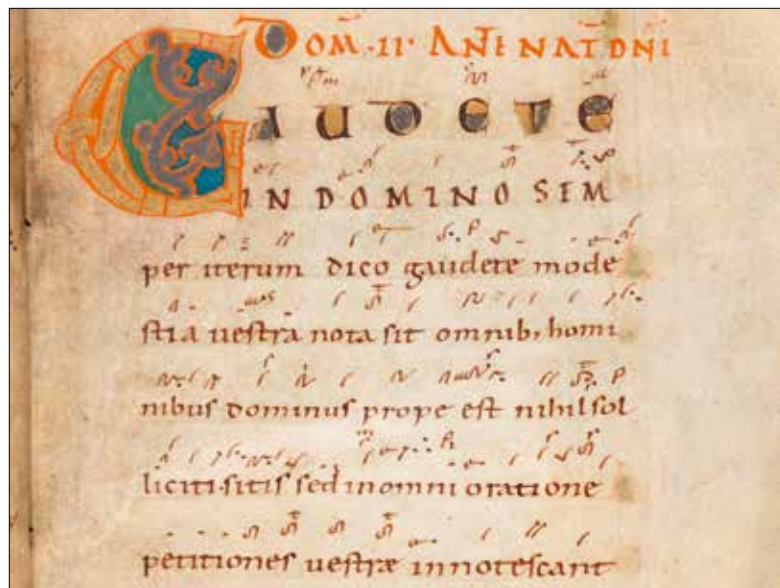 DOM̅·II· ANT̅E NAT̅ DN̅I
GAUDETE
IN DOMINO SEM
per iterum dico gaudete mode
stia uestra nota sit omnib; homi
nibus dominus prope est nihil sol
liciti·sitis sed in omni oratione
petitiones uestræ innotescant